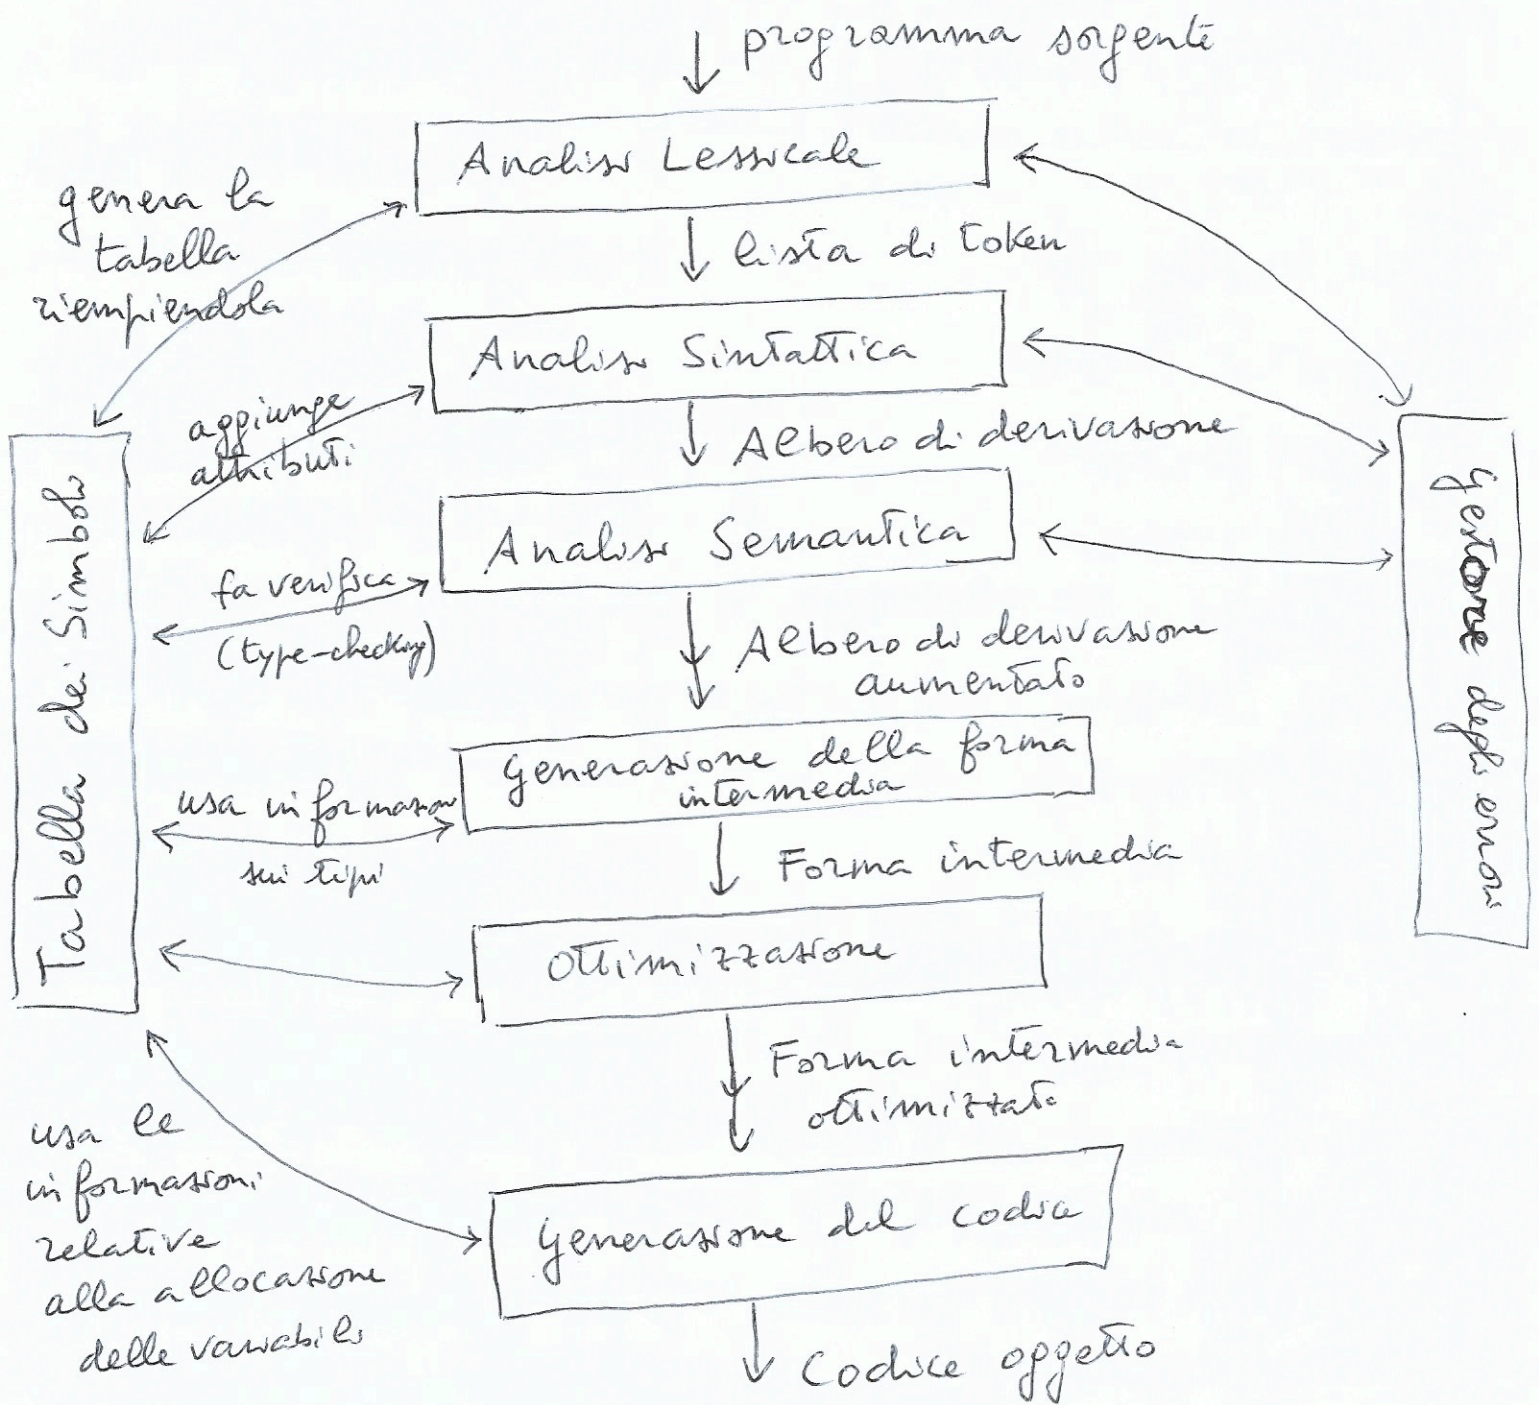 programma sorgente
Analisi Lessicale
genera la
tabella
riempiendola
lista di token
Analisi Sintattica
aggiunge
attributi
Albero di derivazione
Analisi Semantica
fa verifica
(type-checking)
Albero di derivazione
aumentato
Tabella dei Simboli
Gestore degli errori
Generazione della forma
intermedia
usa informazioni
sui tipi
Forma intermedia
Ottimizzazione
Forma intermedia
ottimizzata
usa le
informazioni
relative
alla allocazione
delle variabili
Generazione del codice
Codice oggetto